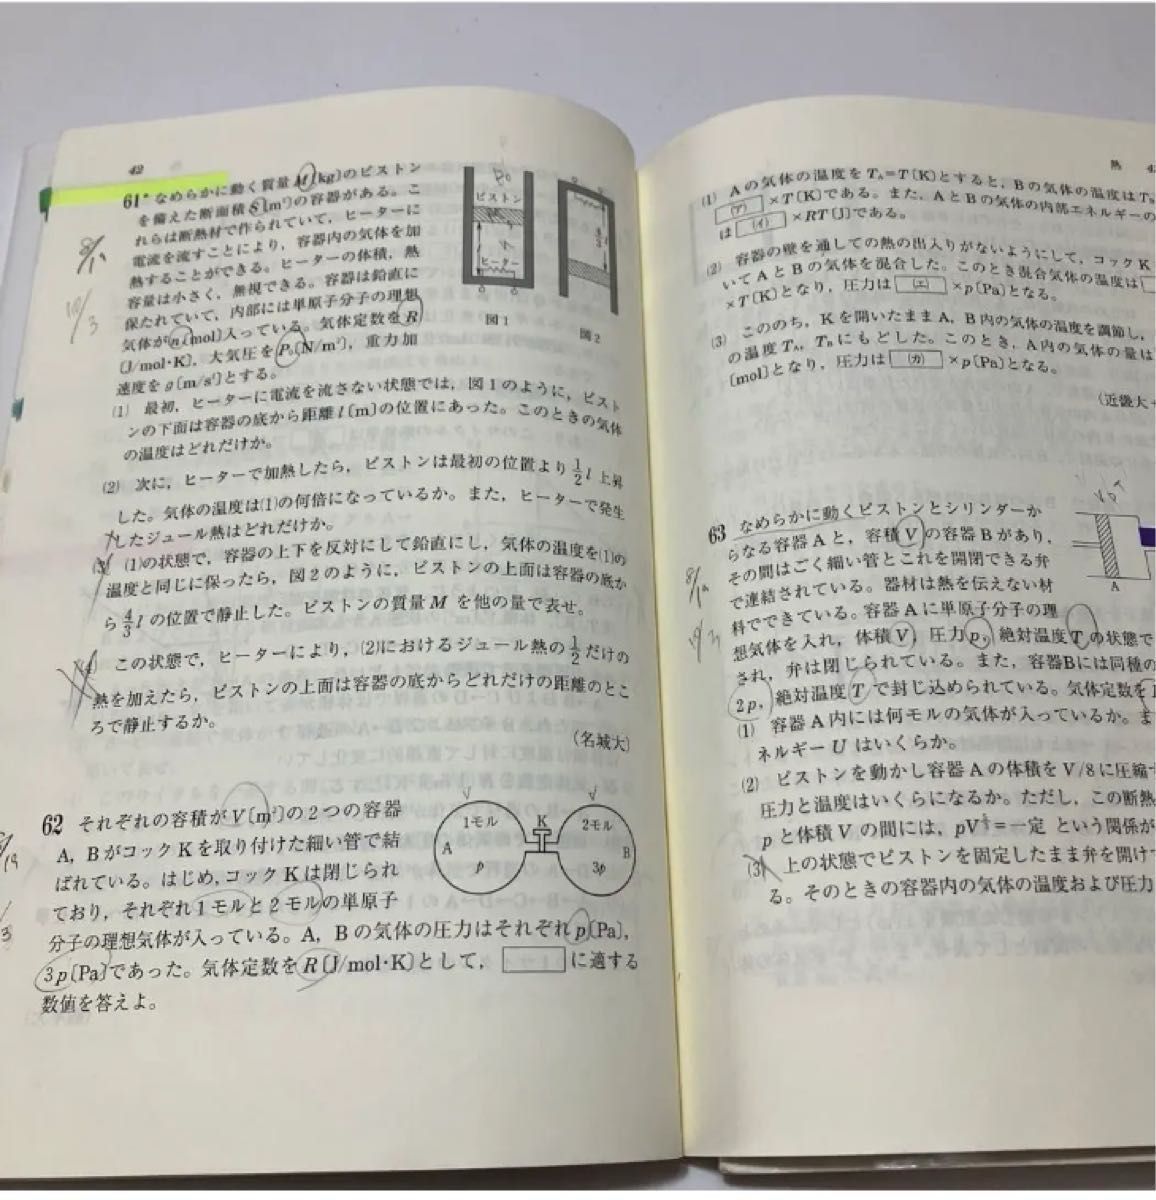 42
61* なめらかに動く質量M〔kg〕のピストン
を備えた断面積S〔m²〕の容器がある。こ
れらは断熱材で作られていて，ヒーターに
電流を流すことにより，容器内の気体を加
熱することができる。ヒーターの体積，熱
容量は小さく，無視できる。容器は鉛直に
保たれていて，内部には単原子分子の理想
気体がn〔mol〕入っている。気体定数をR
〔J/mol・K〕，大気圧をP₀〔N/m²〕，重力加
速度をg〔m/s²〕とする。
P₀
ピストン
ヒーター
図1
図2
8/19
10/3
(1) 最初，ヒーターに電流を流さない状態では，図1のように，ピスト
ンの下面は容器の底から距離l〔m〕の位置にあった。このときの気体
の温度はどれだけか。
(2) 次に，ヒーターで加熱したら，ピストンは最初の位置より1/2 l 上昇
した。気体の温度は(1)の何倍になっているか。また，ヒーターで発生
したジュール熱はどれだけか。
(3) (1)の状態で，容器の上下を反対にして鉛直にし，気体の温度を(1)の
温度と同じに保ったら，図2のように，ピストンの上面は容器の底か
ら4/3 l の位置で静止した。ピストンの質量Mを他の量で表せ。
(4) この状態で，ヒーターにより，(2)におけるジュール熱の1/2だけの
熱を加えたら，ピストンの上面は容器の底からどれだけの距離のとこ
ろで静止するか。
(名城大)
62 それぞれの容積がV〔m³〕の2つの容器
A，BがコックKを取り付けた細い管で結
ばれている。はじめ，コックKは閉じられ
ており，それぞれ1モルと2モルの単原子
分子の理想気体が入っている。A，Bの気体の圧力はそれぞれp〔Pa〕，
3p〔Pa〕であった。気体定数をR〔J/mol・K〕として，に適する
数値を答えよ。
V
V
1モル
K
2モル
A
B
p
3p
熱
(1) Aの気体の温度をTA=T〔K〕とすると，Bの気体の温度はTB
(ア) ×T〔K〕である。また，AとBの気体の内部エネルギーの
は (イ) ×RT〔J〕である。
(2) 容器の壁を通しての熱の出入りがないようにして，コックK
いてAとBの気体を混合した。このとき混合気体の温度は
×T〔K〕となり，圧力は (エ) ×p〔Pa〕となる。
(3) こののち，Kを開いたままA，B内の気体の温度を調節し，
の温度TA，TBにもどした。このとき，A内の気体の量は
〔mol〕となり，圧力は (カ) ×p〔Pa〕となる。
(近畿大
63 なめらかに動くピストンとシリンダーか
らなる容器Aと，容積Vの容器Bがあり，
その間はごく細い管とこれを開閉できる弁
で連結されている。器材は熱を伝えない材
料でできている。容器Aに単原子分子の理
想気体を入れ，体積V，圧力p，絶対温度Tの状態で
され，弁は閉じられている。また，容器Bには同種の
2p，絶対温度Tで封じ込められている。気体定数を
A
(1) 容器A内には何モルの気体が入っているか。ま
ネルギーUはいくらか。
(2) ピストンを動かし容器Aの体積をV/8に圧縮
圧力と温度はいくらになるか。ただし，この断熱
pと体積Vの間には，pV^(5/3)=一定 という関係が
(3) 上の状態でピストンを固定したまま弁を開け
る。そのときの容器内の気体の温度および圧力